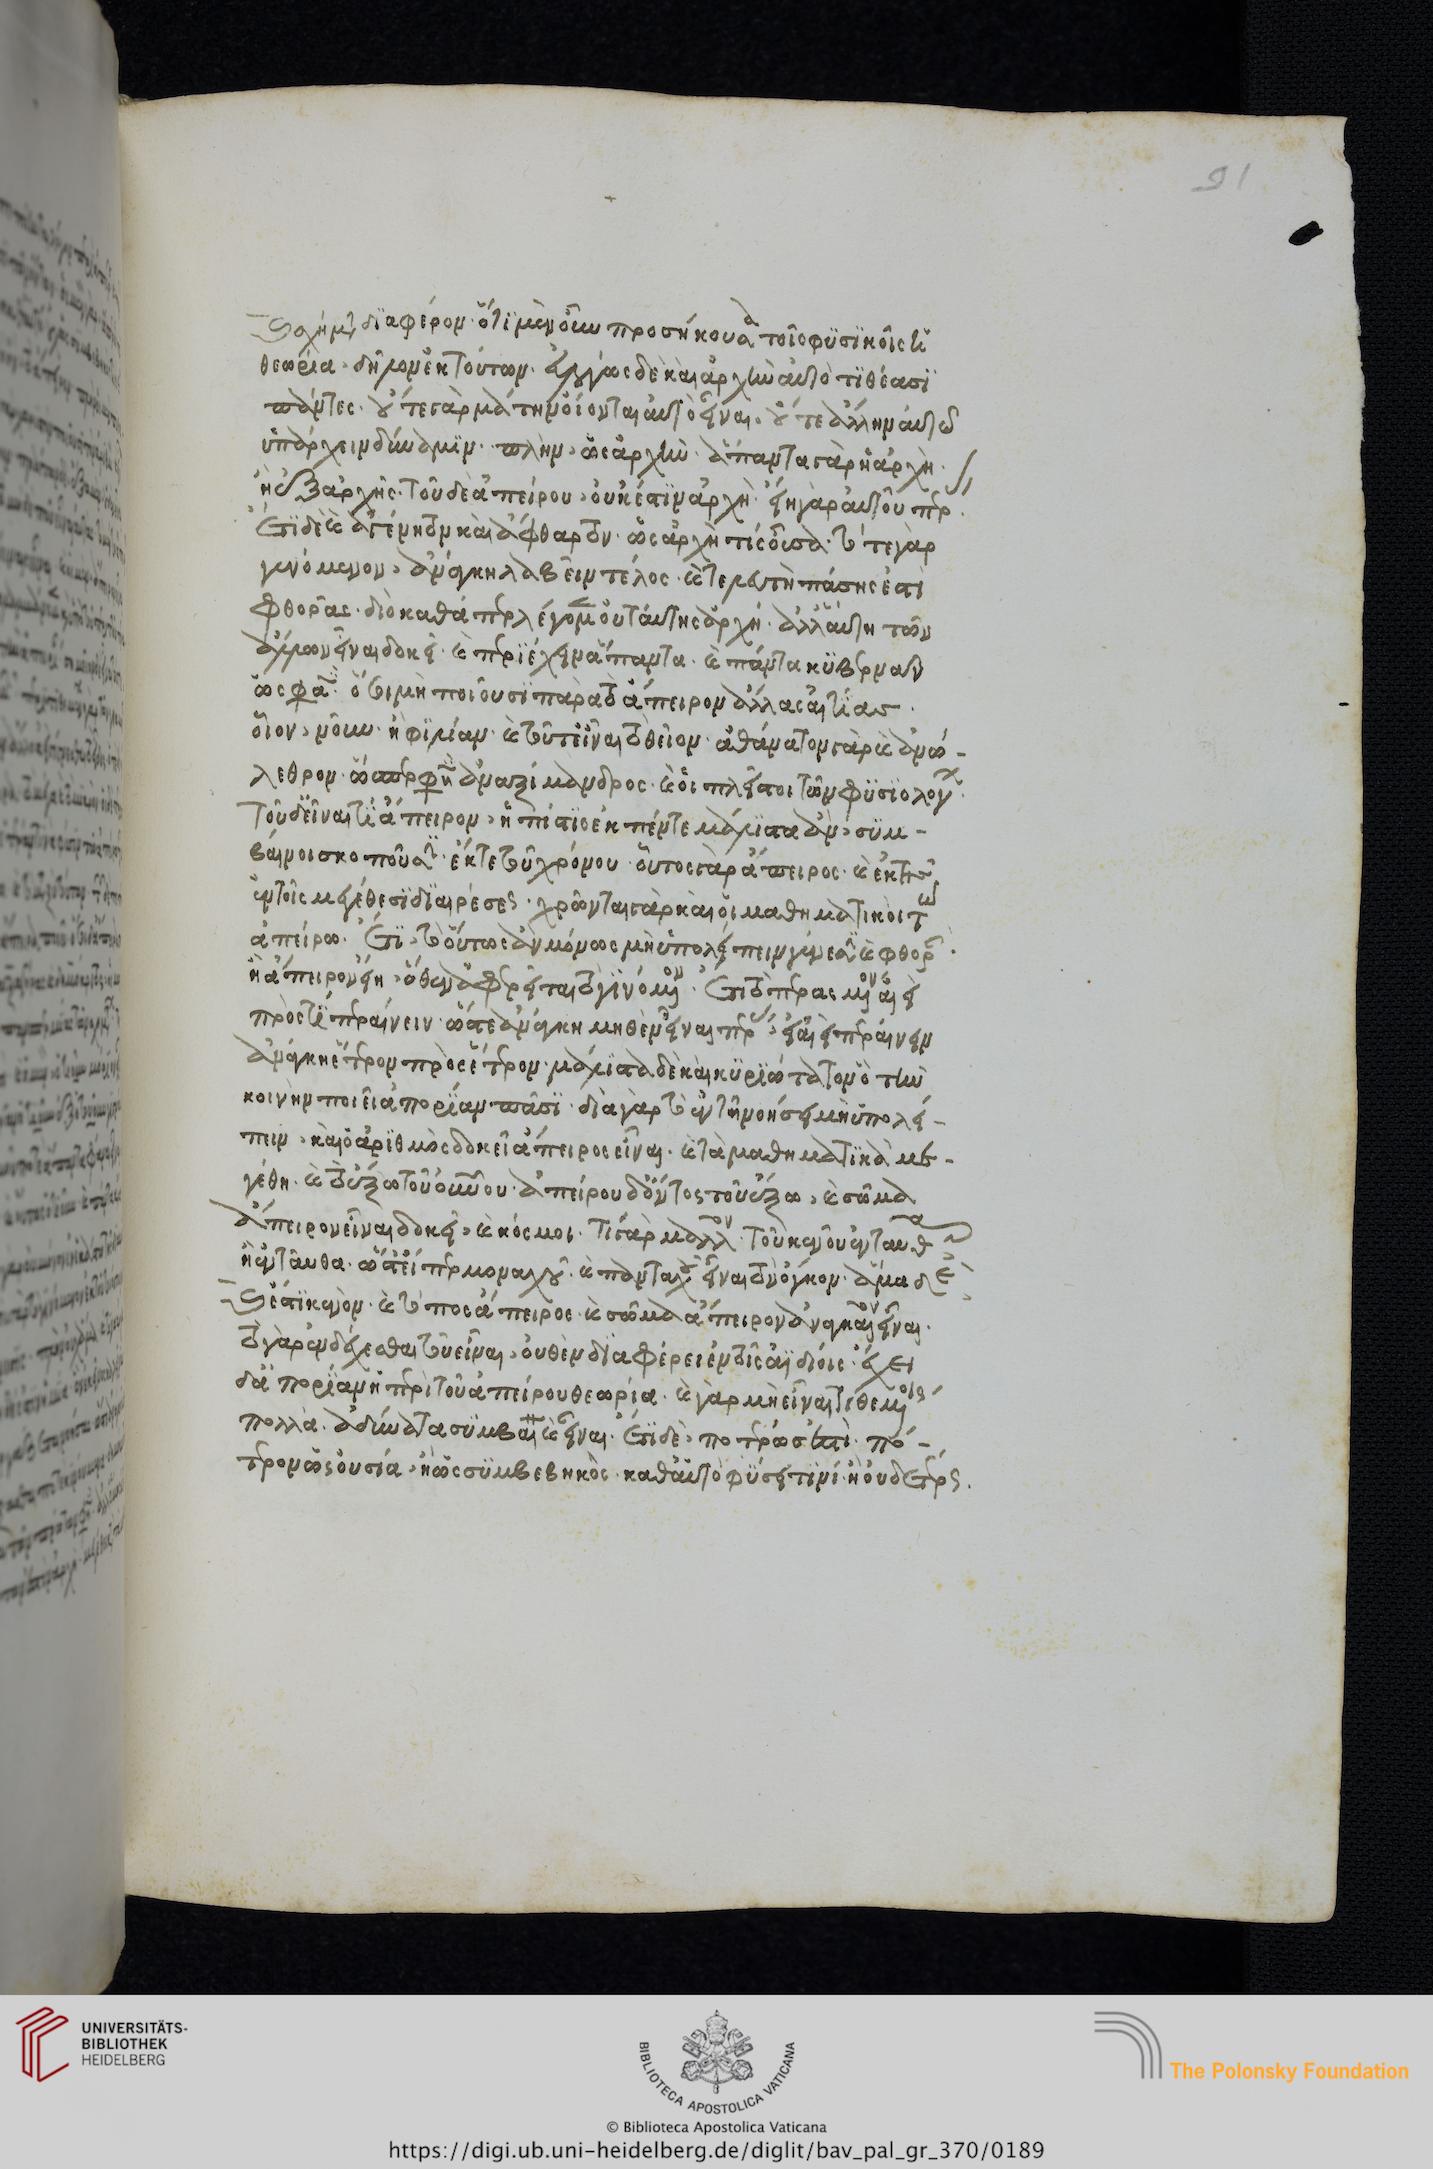 σχήματι διαφέρον· ὅτι μὲν οὖν προσήκουσα τοῖς φυσικοῖς ἡ
θεωρία, δῆλον ἐκ τούτων· εὐλόγως δὲ καὶ ἀρχὴν αὐτὸ τιθέασι
πάντες· οὔτε γὰρ μάτην οἴονται αὐτὸ εἶναι, οὔτε ἄλλην αὐτῶ
ὑπάρχειν δύναμιν· πλὴν, ὡς ἀρχὴν· ἅπαντα γὰρ ἢ ἀρχὴ·
ἢ ἐξ ἀρχῆς· τοῦ δὲ ἀπείρου, οὐκ ἔστιν ἀρχὴ· εἴη γὰρ ἂν αὐτοῦ πέρας·
ἔτι δὲ καὶ ἀγένητον καὶ ἄφθαρτον· ὡς ἀρχή τις οὖσα· τό τε γὰρ
γενόμενον, ἀνάγκη λαβεῖν τέλος· καὶ τελευτὴ πάσης ἐστὶ
φθορᾶς· διὸ καθάπερ λέγομεν οὐ ταύτης ἀρχή· ἀλλ' αὕτη τῶν
ἄλλων εἶναι δοκεῖ· καὶ περιέχειν ἅπαντα· καὶ πάντα κυβερνᾶν
ὥς φασιν· ὅσοι μὴ ποιοῦσι παρὰ τὸ ἄπειρον ἄλλας αἰτίας·
οἷον, νοῦν· ἢ φιλίαν· καὶ τοῦτ' εἶναι τὸ θεῖον· ἀθάνατον γὰρ καὶ ἀνώ-
λεθρον· ὥσπερ φησὶν ἀναξίμανδρος· καὶ οἱ πλεῖστοι τῶν φυσιολόγων·
τοῦ δ' εἶναί τι ἄπειρον, ἡ πίστις ἐκ πέντε μάλιστα ἂν, συμ-
βαίνοι σκοποῦσιν· ἔκ τε τοῦ χρόνου· οὗτος γὰρ ἄπειρος· καὶ ἐκ τῆς
ἐν τοῖς μεγέθεσι διαιρέσεως· χρῶνται γὰρ καὶ οἱ μαθηματικοὶ τῶ
ἀπείρω· ἔτι, τὸ οὕτως ἂν μόνως μὴ ὑπολείπειν γένεσιν καὶ φθορὰν·
ἢ ἄπειρον εἴη, ὅθεν ἀφαιρεῖται τὸ γινόμενον· ἔτι τὸ πέρας μὲν ἀεὶ
πρός τι περαίνειν· ὥστε ἀνάγκη μηθὲν εἶναι πέρας· εἰ ἀεὶ περαίνειν
ἀνάγκη ἕτερον πρὸς ἕτερον· μάλιστα δὲ καὶ κυριώτατον ὃ τὴν
κοινὴν ποιεῖ ἀπορίαν πᾶσι· διὰ γὰρ τὸ ἐν τῆ νοήσει μὴ ὑπολεί-
πειν, καὶ ὁ ἀριθμὸς δοκεῖ ἄπειρος εἶναι· καὶ τὰ μαθηματικὰ με-
γέθη· καὶ τὸ ἔξω τοῦ οὐρανοῦ· ἀπείρου δ' ὄντος τοῦ ἔξω, καὶ σῶμα
ἄπειρον εἶναι δοκεῖ, καὶ κόσμοι· τί γὰρ μᾶλλον τοῦ κενοῦ ἐνταῦθα
ἢ ἐνταῦθα· ὥστ' εἴπερ μοναχοῦ· καὶ πανταχοῦ εἶναι τὸν ὄγκον· ἅμα δ' εἰ
ἔστι κενὸν· καὶ τόπος ἄπειρος· καὶ σῶμα ἄπειρον ἀναγκαῖον εἶναι·
τὸ γὰρ ἐνδέχεσθαι τοῦ εἶναι, οὐθὲν διαφέρει ἐν τοῖς ἀϊδίοις· ἔχει
δ' ἀπορίαν ἡ περὶ τοῦ ἀπείρου θεωρία· καὶ γὰρ μὴ εἶναι τιθεμένοις
πολλὰ ἀδύνατα συμβαίνει καὶ εἶναι· ἔτι δὲ, ποτέρως ἐστὶ· πό-
τερον ὡς οὐσία, ἢ ὡς συμβεβηκὸς καθ' αὑτὸ φύσει τινί· ἢ οὐδετέρως.
© Biblioteca Apostolica Vaticana
UNIVERSITÄTS-
BIBLIOTHEK
HEIDELBERG
BIBLIOTECA APOSTOLICA VATICANA
The Polonsky Foundation
https://digi.ub.uni-heidelberg.de/diglit/bav_pal_gr_370/0189